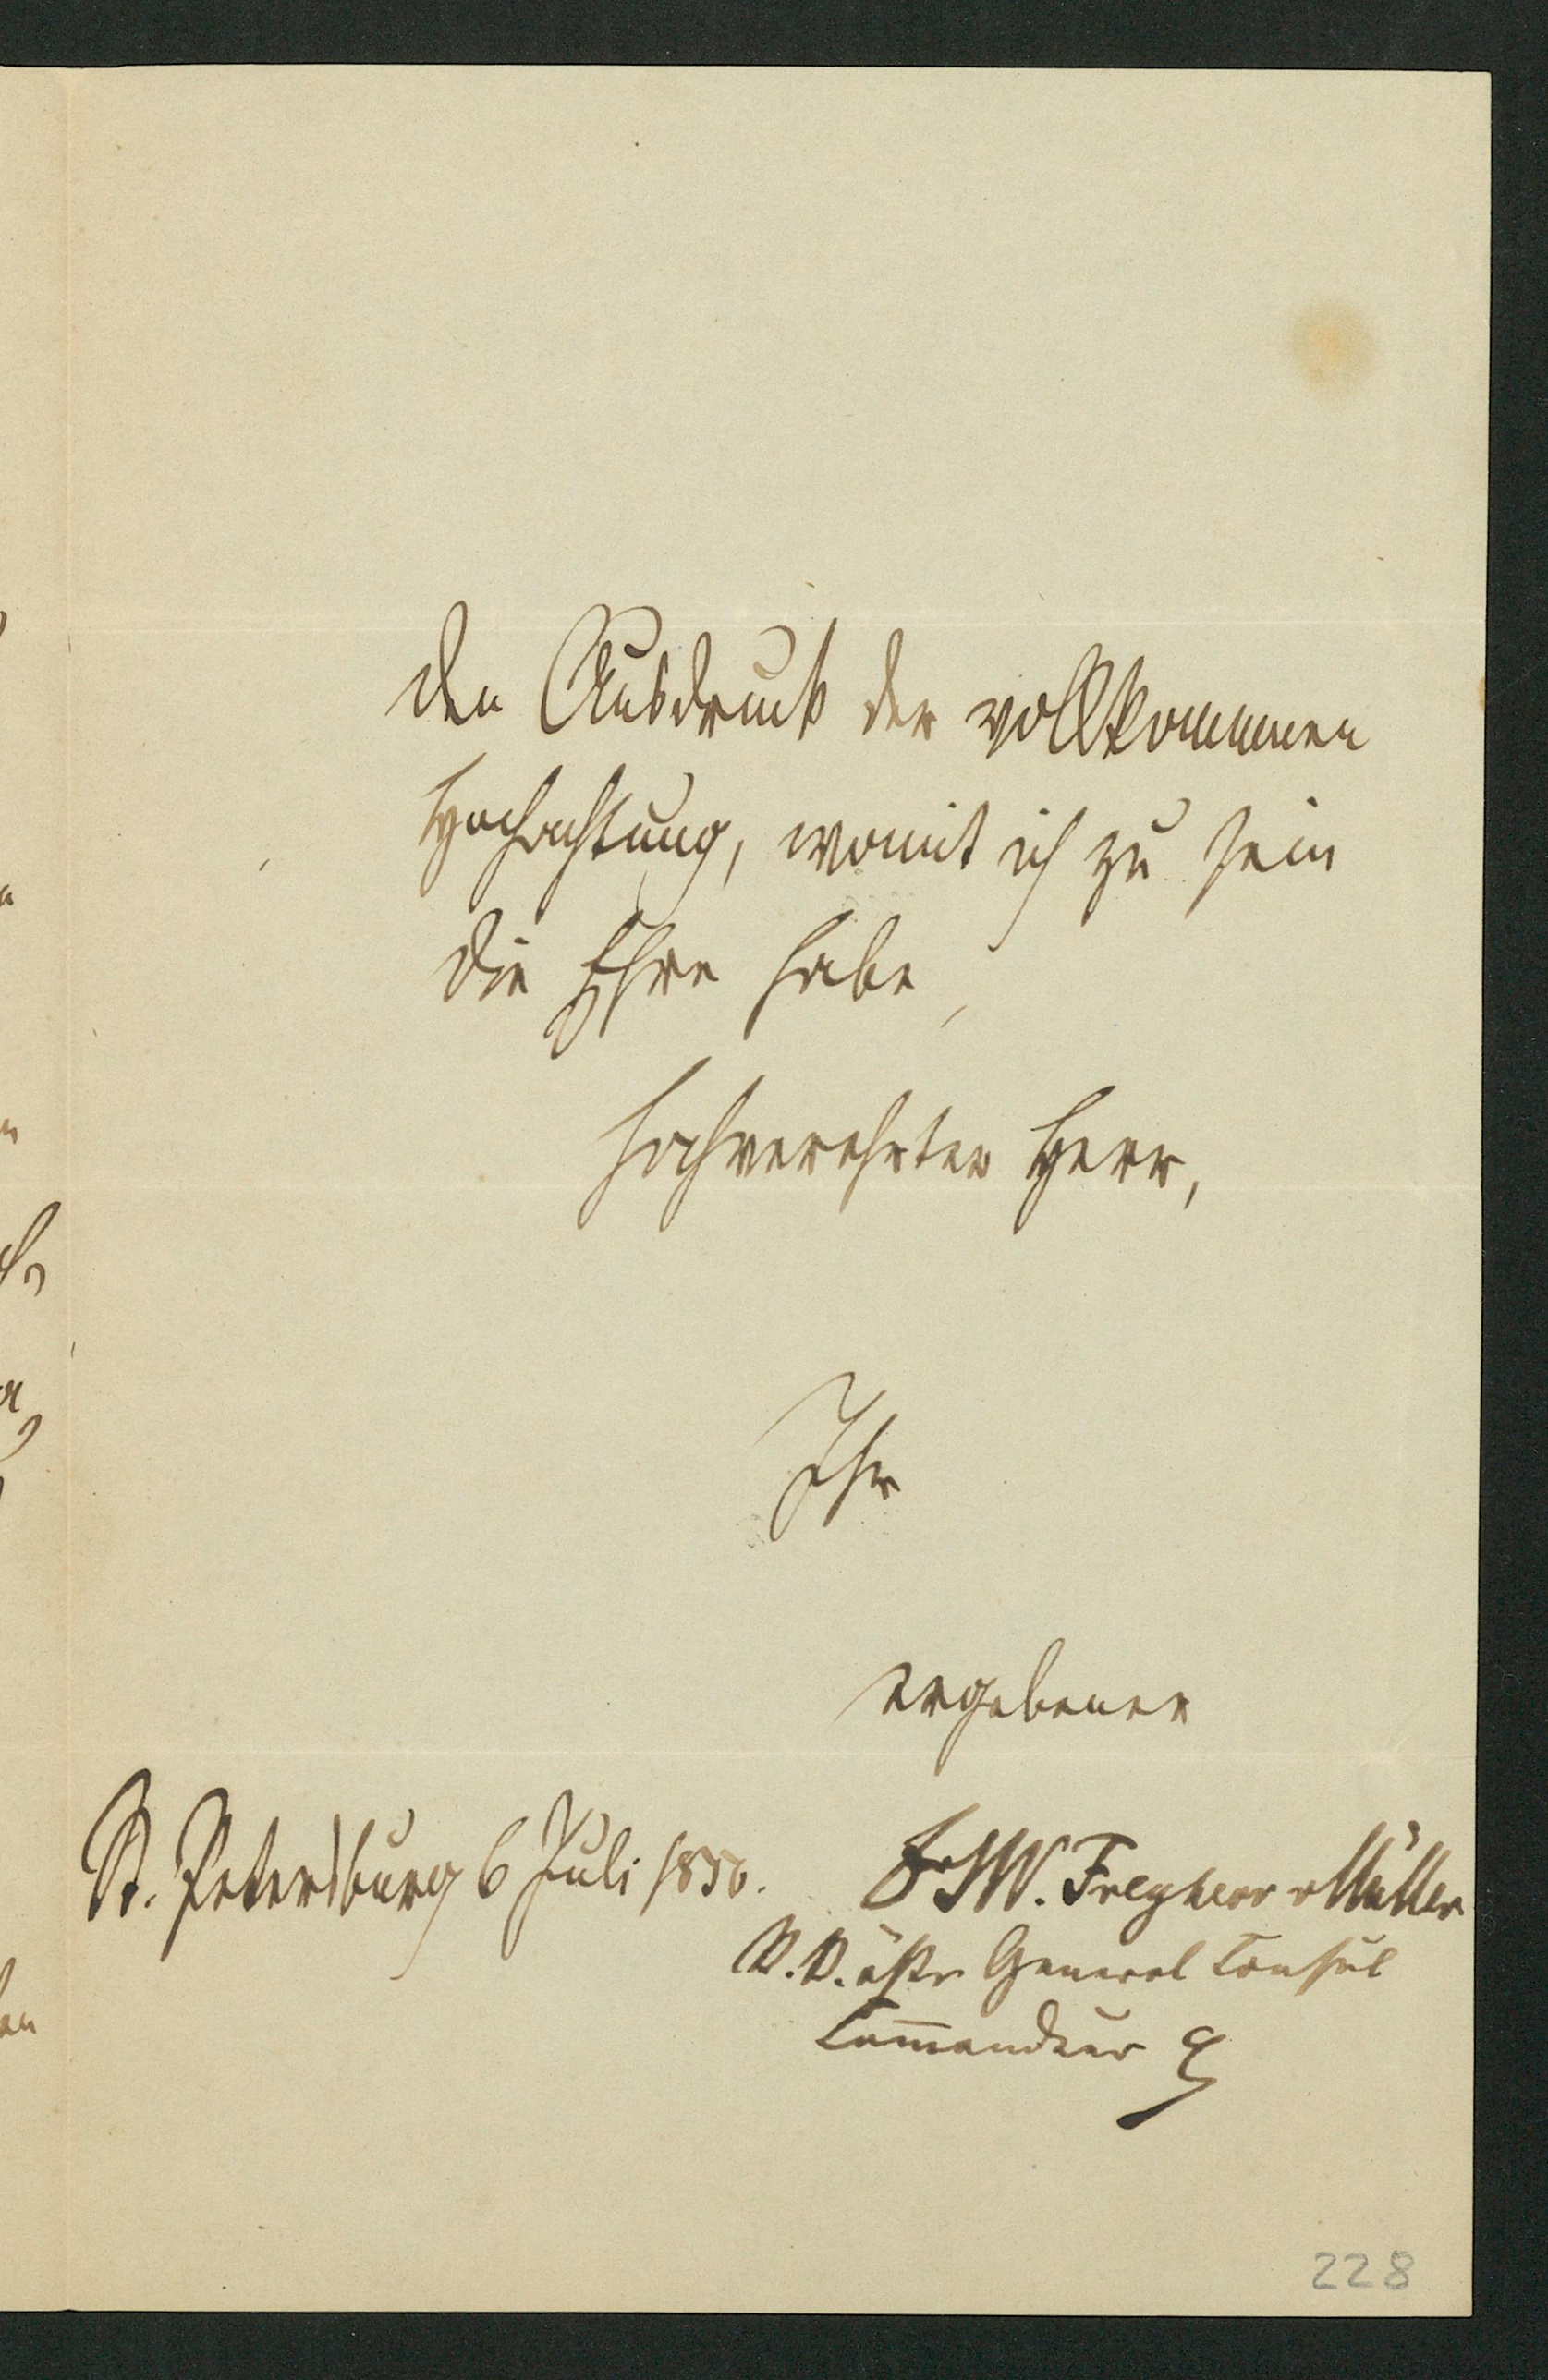 den Ausdruck der vollkommnen
Hochachtung, womit ich zu sein
die Ehre habe,
hochverehrter Herr,
Ihr
ergebener
St. Petersburg 6 Juli 1850.
J.W. Freyherr v Müller
K.K. östr General Consul
Com̅andeur
228